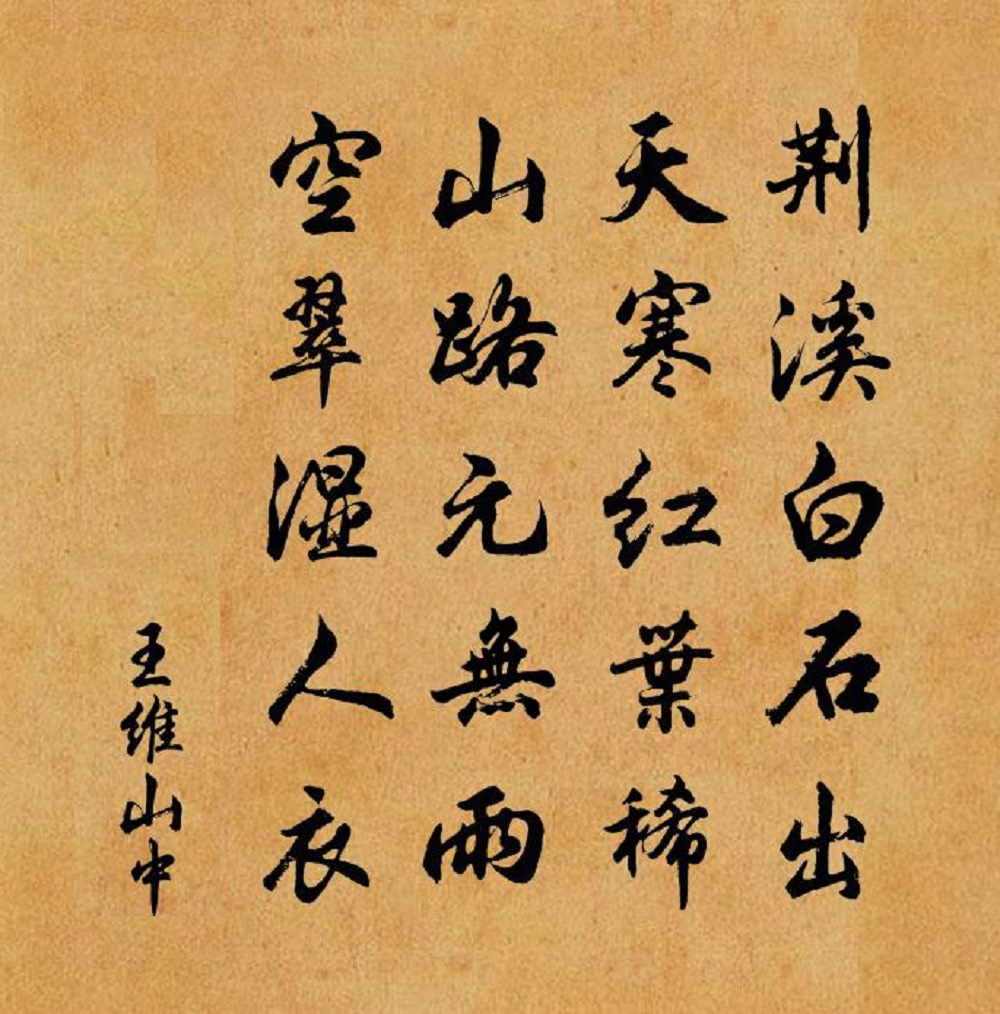 荆溪白石出
天寒红葉稀
山路元無雨
空翠湿人衣
王维山中